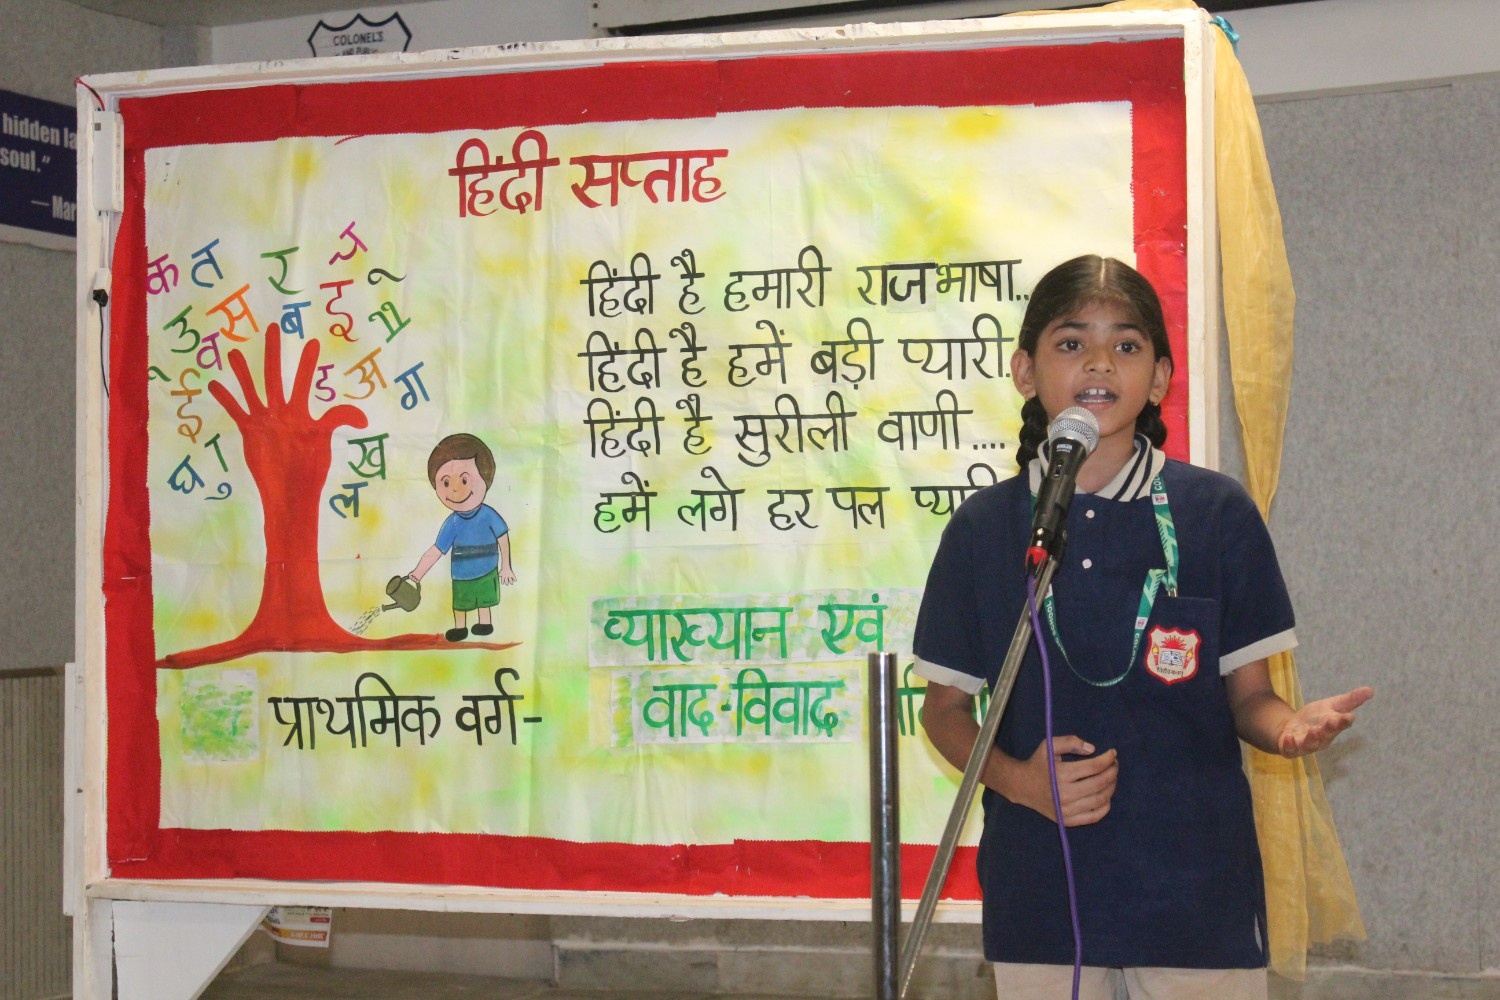 COLONEL'S
hidden la
soul."
— Mar
हिंदी सप्ताह
क त र
उ स ब इ
व
ई ड अ ग
घ ख
ल
हिंदी है हमारी राजभाषा..
हिंदी है हमें बड़ी प्यारी.
हिंदी है सुरीली वाणी....
हमें लगे हर पल
व्याख्यान एवं
प्राथमिक वर्ग- वाद-विवाद